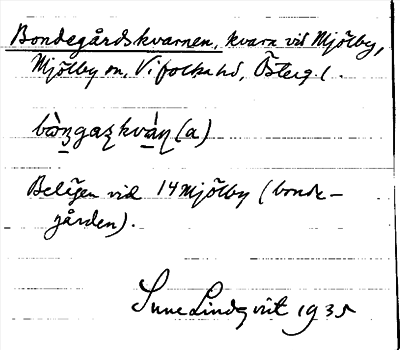 Bondegårdskvarnen, kvarn vid Mjölby,
Mjölby sn, Vifolka hd, Österg.l.
Belägen vid 14 Mjölby (bonde-
gården).
Sune Lindqvist 1935